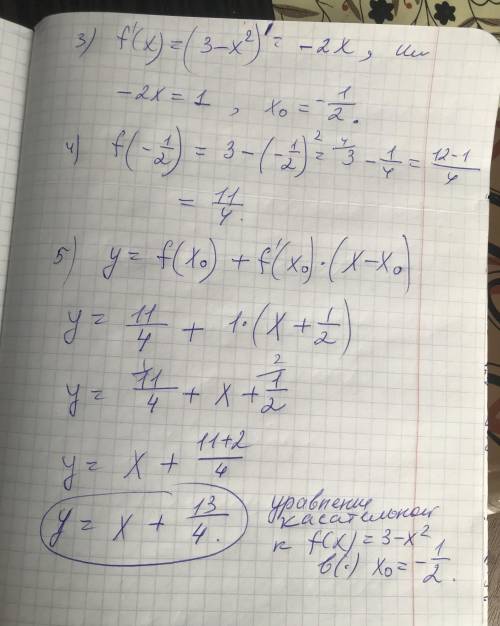 3) f'(x) = (3-x²)' = -2x,
-2x = 1, x₀ = -1/2.
4) f(-1/2) = 3 - (-1/2)² = ⁴3 - 1/4 = (12-1)/4
= 11/4.
5) y = f(x₀) + f'(x₀)·(x-x₀)
y = 11/4 + 1·(x + 1/2)
y = ¹11/4 + x + ²1/2
y = x + (11+2)/4
y = x + 13/4.
уравнение
касательной
к f(x) = 3-x²
в(·) x₀ = -1/2.